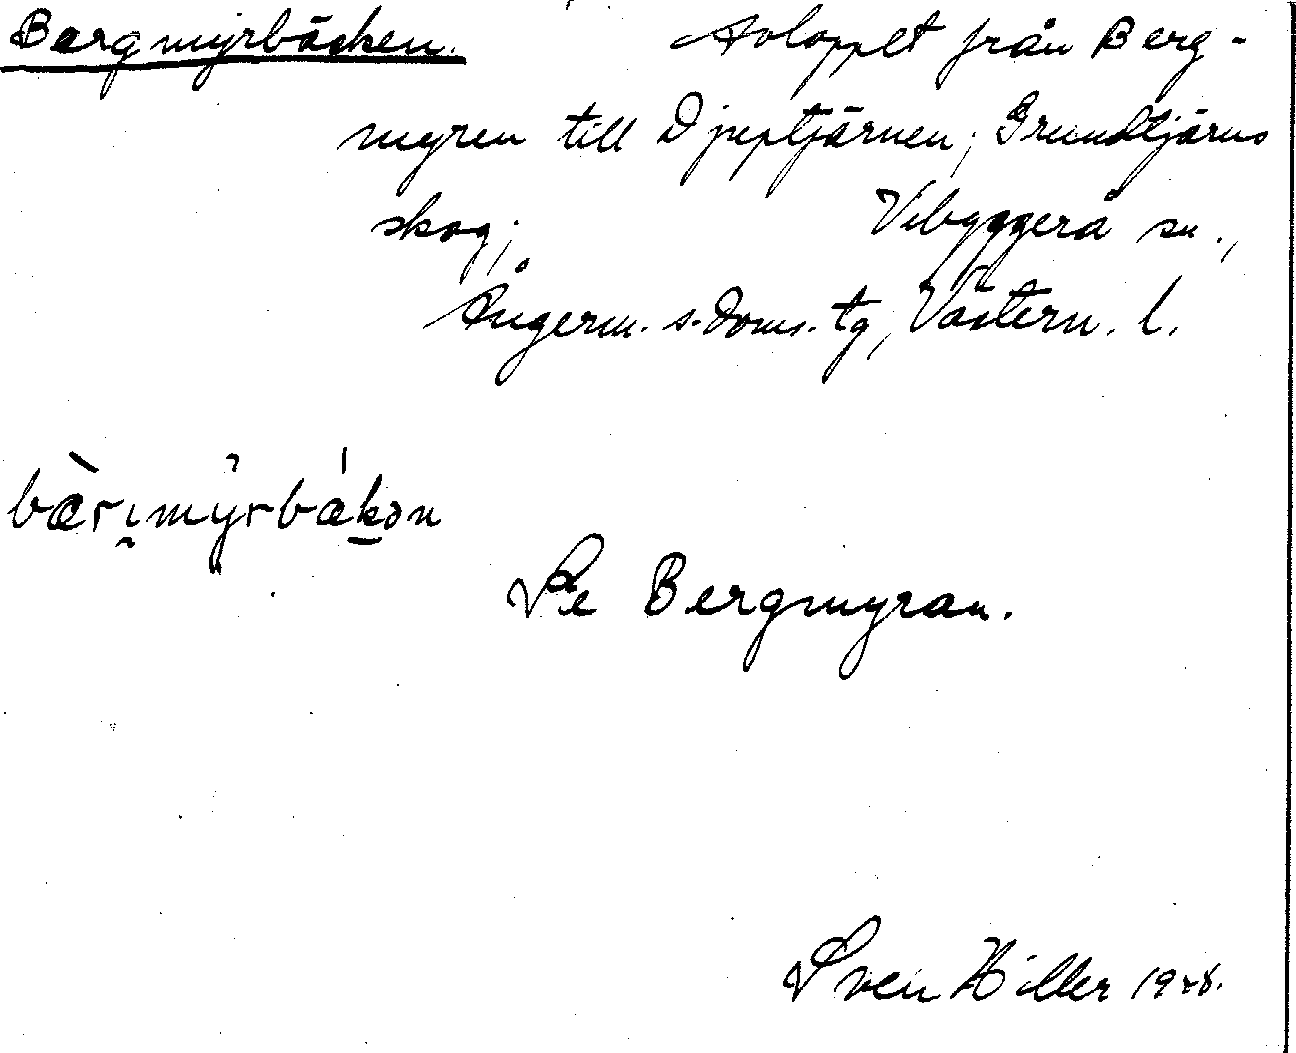 Bergmyrbäcken. Avloppet från Berg-
myren till Djuptjärnen; Grundtjärns
skog; Vibyggerå sn.,
Ångerm. s. doms. tg, Västern. l.
bær̀ımy̆rbákən
Se Bergmyran.
Sven Hiller 1928.